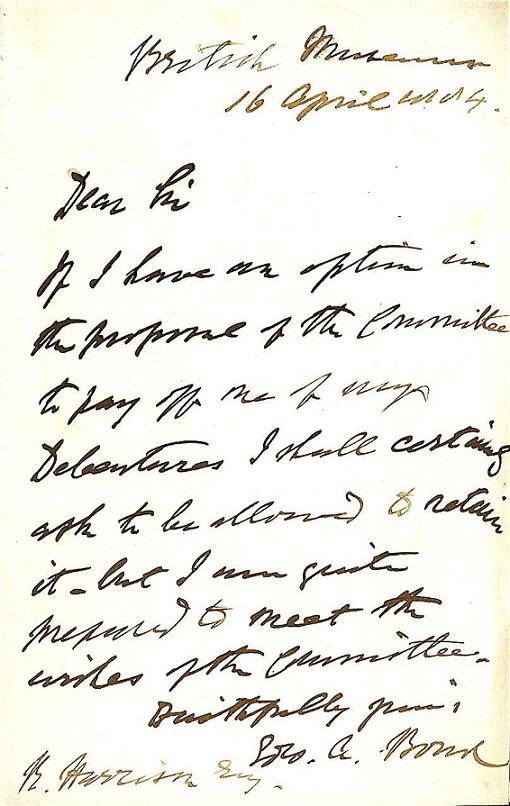 British Museum
16 April 1884.
Dear Sir
If I have an option in
the proposal of the Committee
to pay off one of my
Debentures I shall certainly
ask to be allowed to retain
it - but I am quite
prepared to meet the
wishes of the Committee.
Faithfully yours,
Edw. A. Bond
R. Harrison Esq.